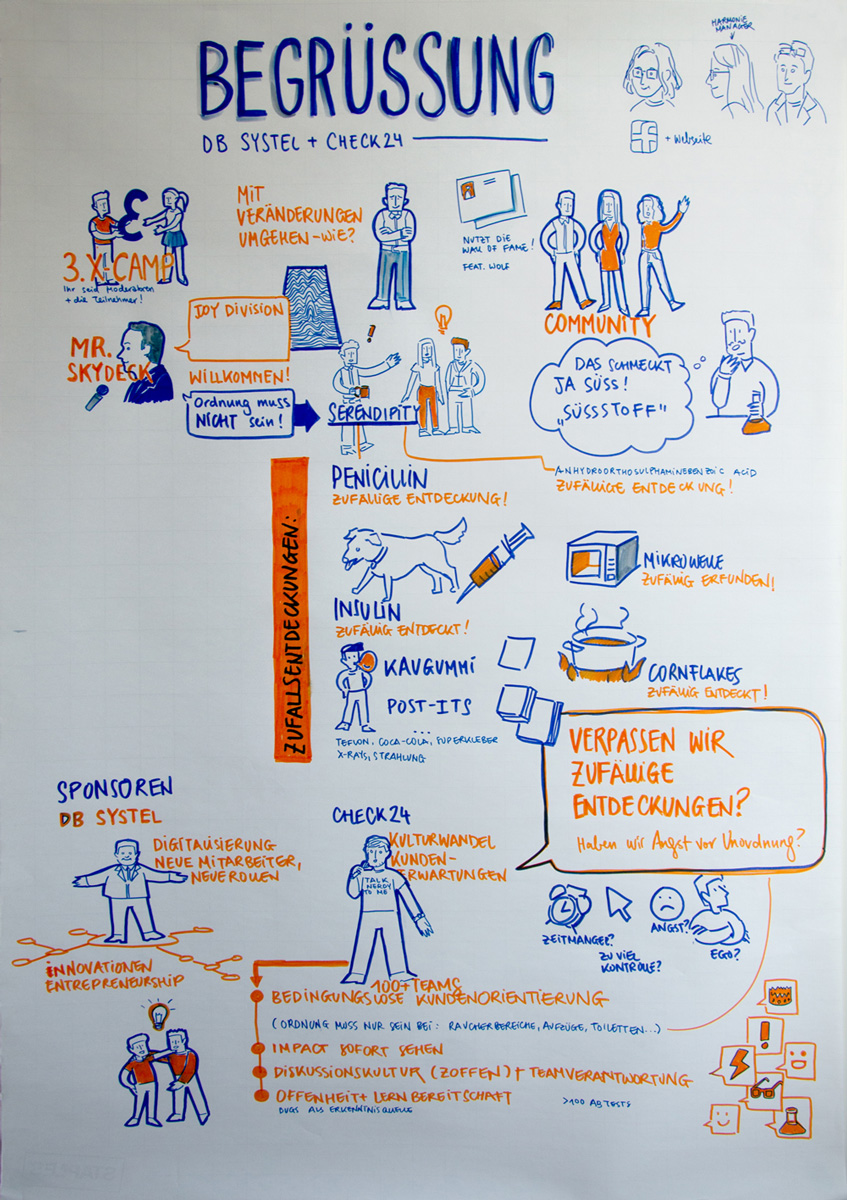 BEGRÜSSUNG
DB SYSTEL + CHECK24
HARMONIE
MANAGER
+ Webseite
3. X-CAMP
Ihr seid Moderatoren
+ die Teilnehmer!
MIT
VERÄNDERUNGEN
UMGEHEN - WIE?
NUTZT DIE
WALL OF FAME!
FEAT. WOLF
COMMUNITY
MR.
SKYDECK
JOY DIVISION
WILLKOMMEN!
Ordnung muss
NICHT sein!
SERENDIPITY
DAS SCHMECKT
JA SÜSS!
„SÜSSSTOFF"
ZUFALLSENTDECKUNGEN:
PENICILLIN
ZUFÄLLIGE ENTDECKUNG!
ANHYDROORTHOSULPHAMINEBENZOIC ACID
ZUFÄLLIGE ENTDECKUNG!
INSULIN
ZUFÄLLIG ENTDECKT!
MIKROWELLE
ZUFÄLLIG ERFUNDEN!
KAUGUMMI
POST-ITS
...
TEFLON, COCA-COLA, SUPERKLEBER
X-RAYS, STRAHLUNG
CORNFLAKES
ZUFÄLLIG ENTDECKT!
VERPASSEN WIR
ZUFÄLLIGE
ENTDECKUNGEN?
Haben wir Angst vor Unordnung?
ZEITMANGEL?
ZU VIEL
KONTROLLE?
ANGST?
EGO?
SPONSOREN
DB SYSTEL
DIGITALISIERUNG
NEUE MITARBEITER,
NEUE ROLLEN
INNOVATIONEN
ENTREPRENEURSHIP
CHECK24
KULTURWANDEL
KUNDEN-
ERWARTUNGEN
TALK
NERDY
TO ME
100+ TEAMS
BEDINGUNGSLOSE KUNDENORIENTIERUNG
(ORDNUNG MUSS NUR SEIN BEI: RAUCHERBEREICHE, AUFZÜGE, TOILETTEN...)
IMPACT SOFORT SEHEN
DISKUSSIONSKULTUR (ZOFFEN) + TEAMVERANTWORTUNG
OFFENHEIT + LERNBEREITSCHAFT
BUGS ALS ERKENNTNISQUELLE
>100 AB TESTS